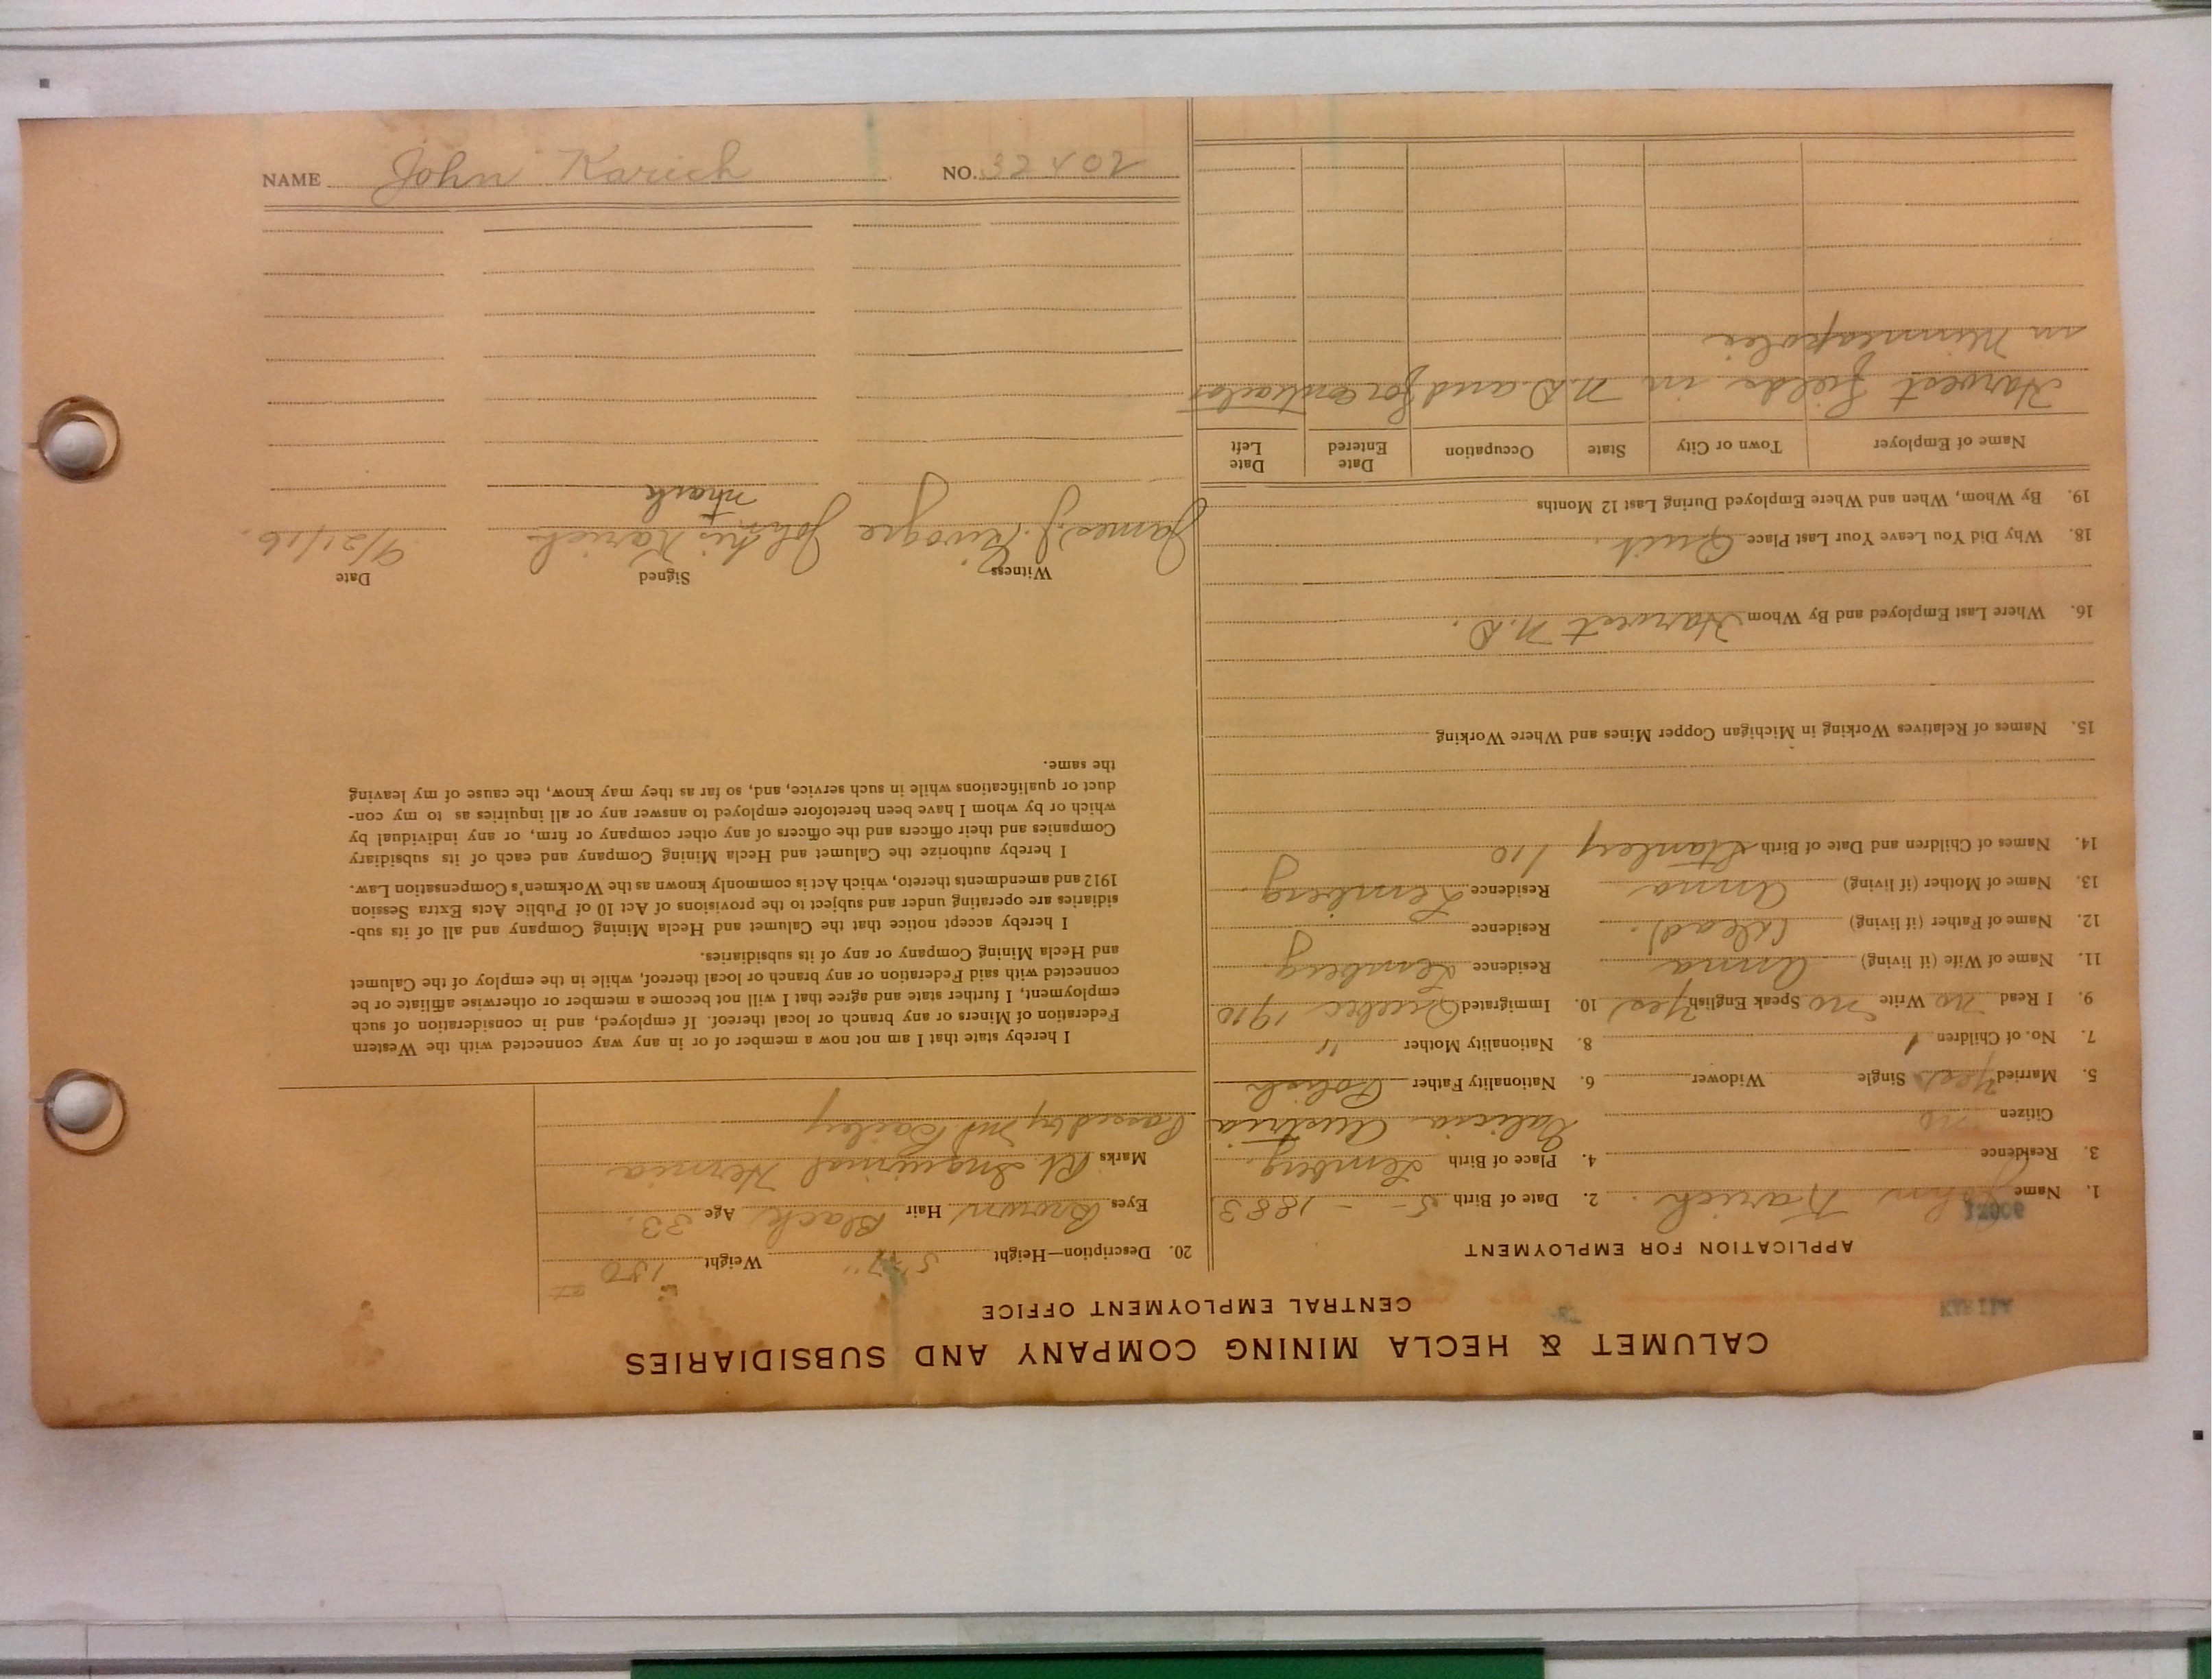 NAME John Karich NO. 32402
CALUMET & HECLA MINING COMPANY AND SUBSIDIARIES
CENTRAL EMPLOYMENT OFFICE
APPLICATION FOR EMPLOYMENT
1. Name John Karich. 2. Date of Birth 5 - - 1883
3. Residence 4. Place of Birth Lemberg.
Citizen no Galicia Austria
5. Married yes Single Widower 6. Nationality Father Polish
7. No. of Children 1 8. Nationality Mother "
9. I Read no Write no Speak English yes 10. Immigrated Quebec 1910
11. Name of Wife (if living) Anna Residence Lemberg
12. Name of Father (if living) (dead). Residence
13. Name of Mother (if living) Anna Residence Lemberg.
14. Names of Children and Date of Birth Stanley 1/10
15. Names of Relatives Working in Michigan Copper Mines and Where Working
16. Where Last Employed and By Whom Harvest N.D.
18. Why Did You Leave Your Last Place Quit.
19. By Whom, When and Where Employed During Last 12 Months
Name of Employer Town or City State Occupation Date Entered Date Left
Harvest fields in N.D and for contractor
in Minneapolis
20. Description—Height 5' 7" Weight 150
Eyes Brown Hair Black Age 33.
Marks Rt Inguinal Hernia
Passed by Mr. Bailey
I hereby state that I am not now a member of or in any way connected with the Western
Federation of Miners or any branch or local thereof. If employed, and in consideration of such
employment, I further state and agree that I will not become a member or otherwise affiliate or be
connected with said Federation or any branch or local thereof, while in the employ of the Calumet
and Hecla Mining Company or any of its subsidiaries.
I hereby accept notice that the Calumet and Hecla Mining Company and all of its sub-
sidiaries are operating under and subject to the provisions of Act 10 of Public Acts Extra Session
1912 and amendments thereto, which Act is commonly known as the Workmen's Compensation Law.
I hereby authorize the Calumet and Hecla Mining Company and each of its subsidiary
Companies and their officers and the officers of any other company or firm, or any individual by
which or by whom I have been heretofore employed to answer any or all inquiries as to my con-
duct or qualifications while in such service, and, so far as they may know, the cause of my leaving
the same.
Witness Signed Date
James J. John his Karich 9/21/16.
mark